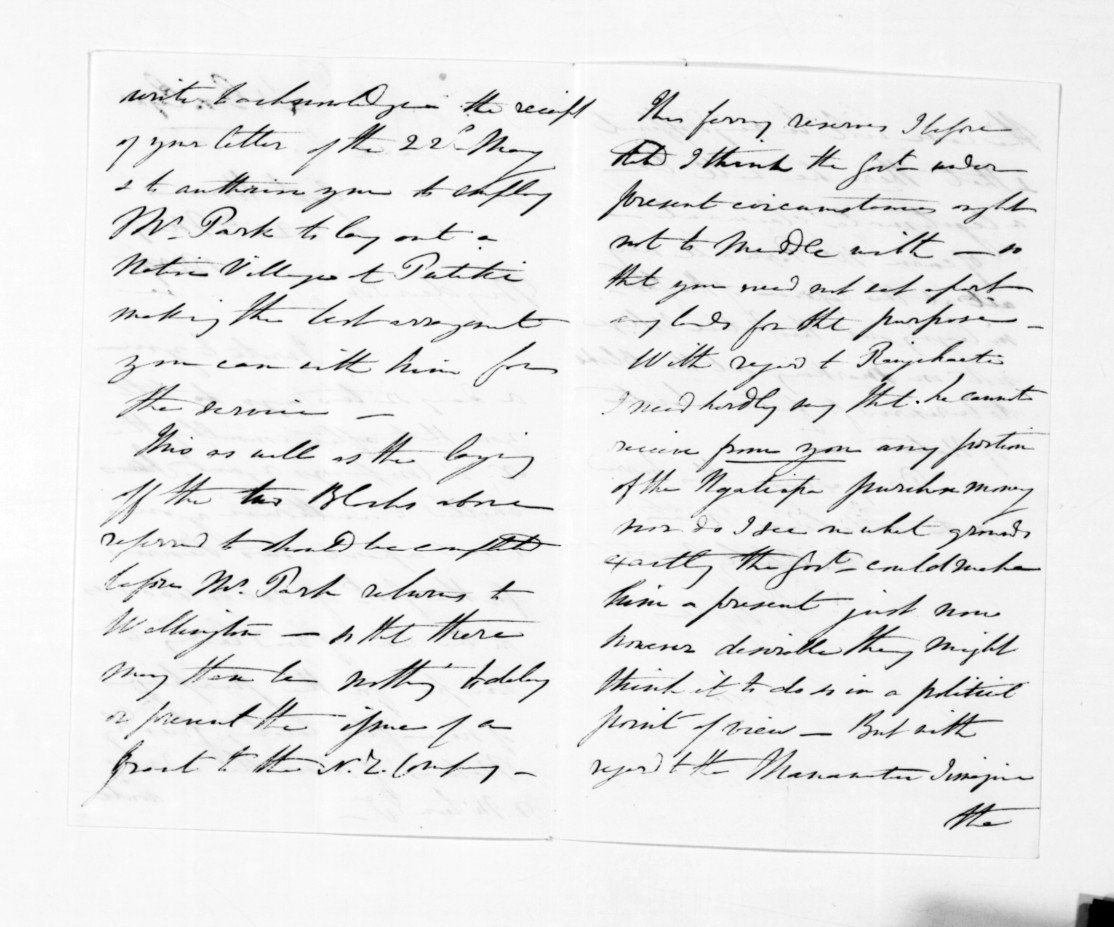 write to acknowledge the receipt
of your letter of the 22d May
& to authorise you to employ
Mr. Park to lay out a
Native Village at Putiki
making the best arrangement
you can with him for
the service —
This as well as the laying
off the two Blocks above
referred to should be completed
before Mr. Park returns to
Wellington — so that there
may then be nothing to delay
or prevent the issue of a
Grant to the N.Z. Company —
This ferry reserves I before
I think the Govt. under
present circumstances ought
not to meddle with — so
that you need not set apart
any lands for that purpose —
With regard to Rangihaeata
I need hardly say that he cannot
receive from you any portion
of the Ngatiapa purchase money
nor do I see on what grounds
exactly the Govt. could make
him a present just now
however desirable they might
think it to do so in a political
point of view — But with
regard to the Manawatu I imagine
the